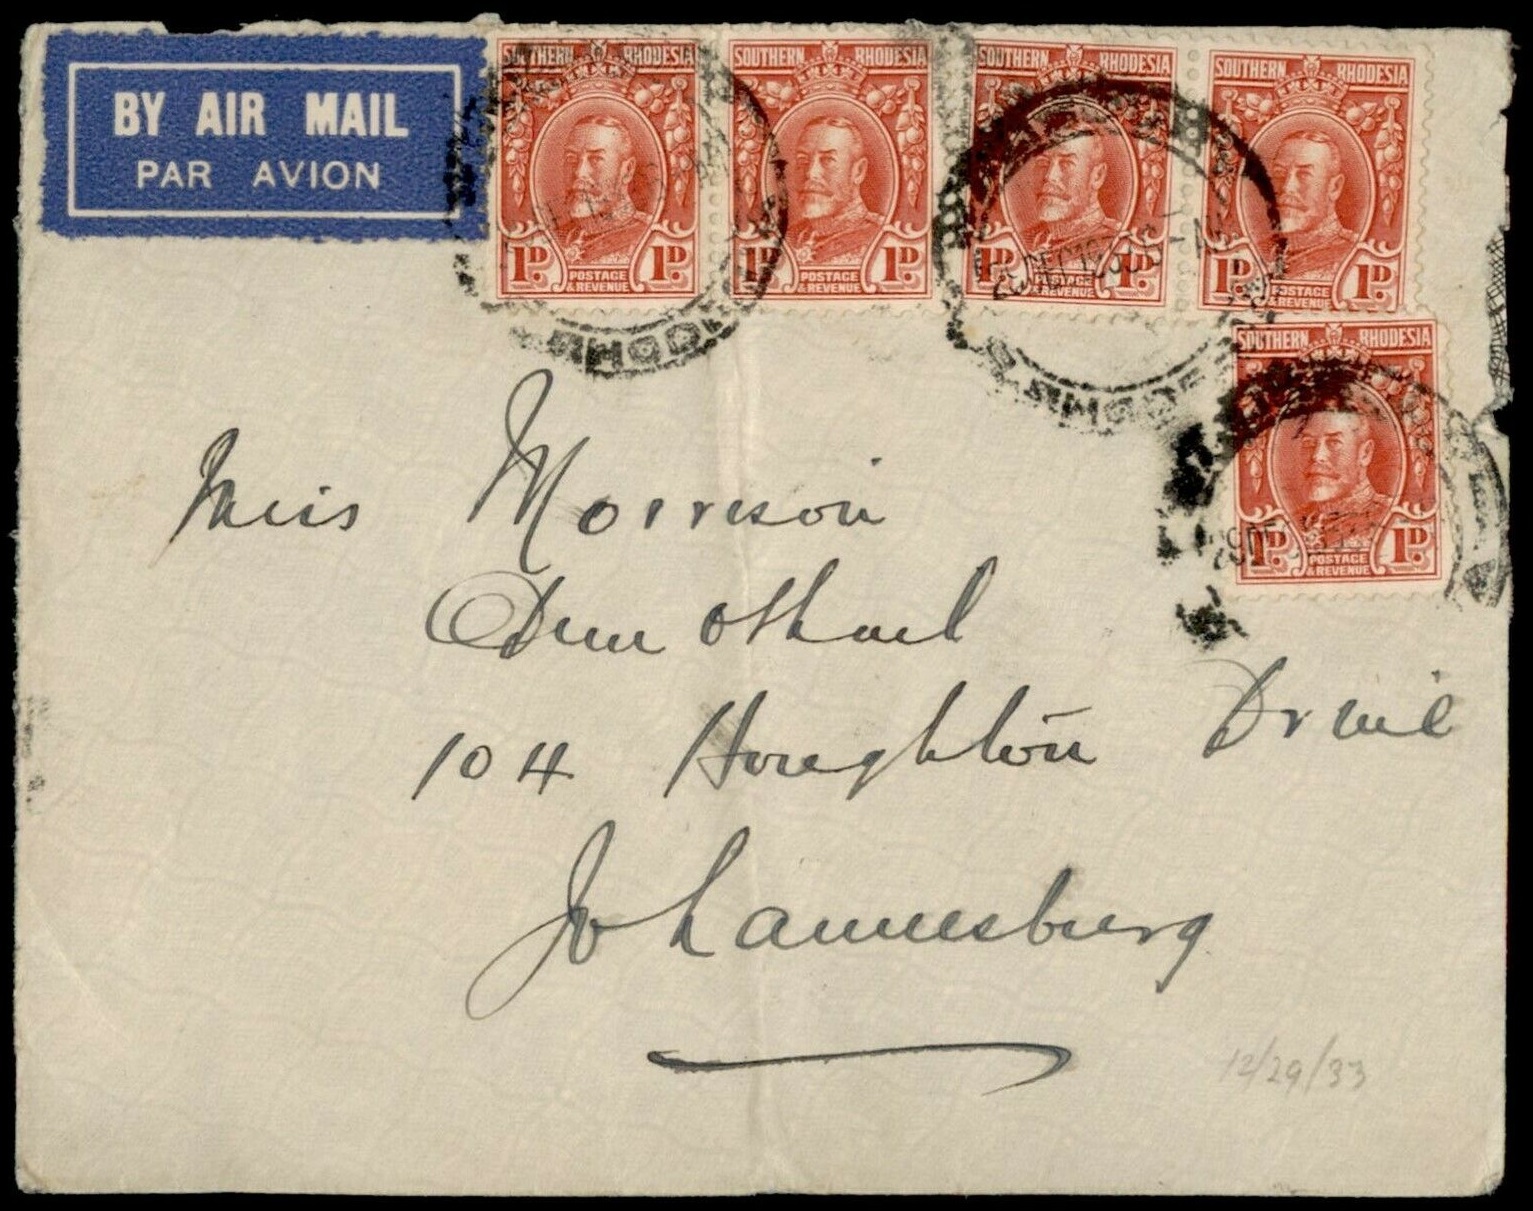 BY AIR MAIL
PAR AVION
SOUTHERN RHODESIA
1D. POSTAGE & REVENUE 1D.
SOUTHERN RHODESIA
1D. POSTAGE & REVENUE 1D.
SOUTHERN RHODESIA
1D. POSTAGE & REVENUE 1D.
SOUTHERN RHODESIA
1D. POSTAGE & REVENUE 1D.
SOUTHERN RHODESIA
1D. POSTAGE & REVENUE 1D.
Miss Morrison
104 Houghton Drive
Johannesburg
12/29/33